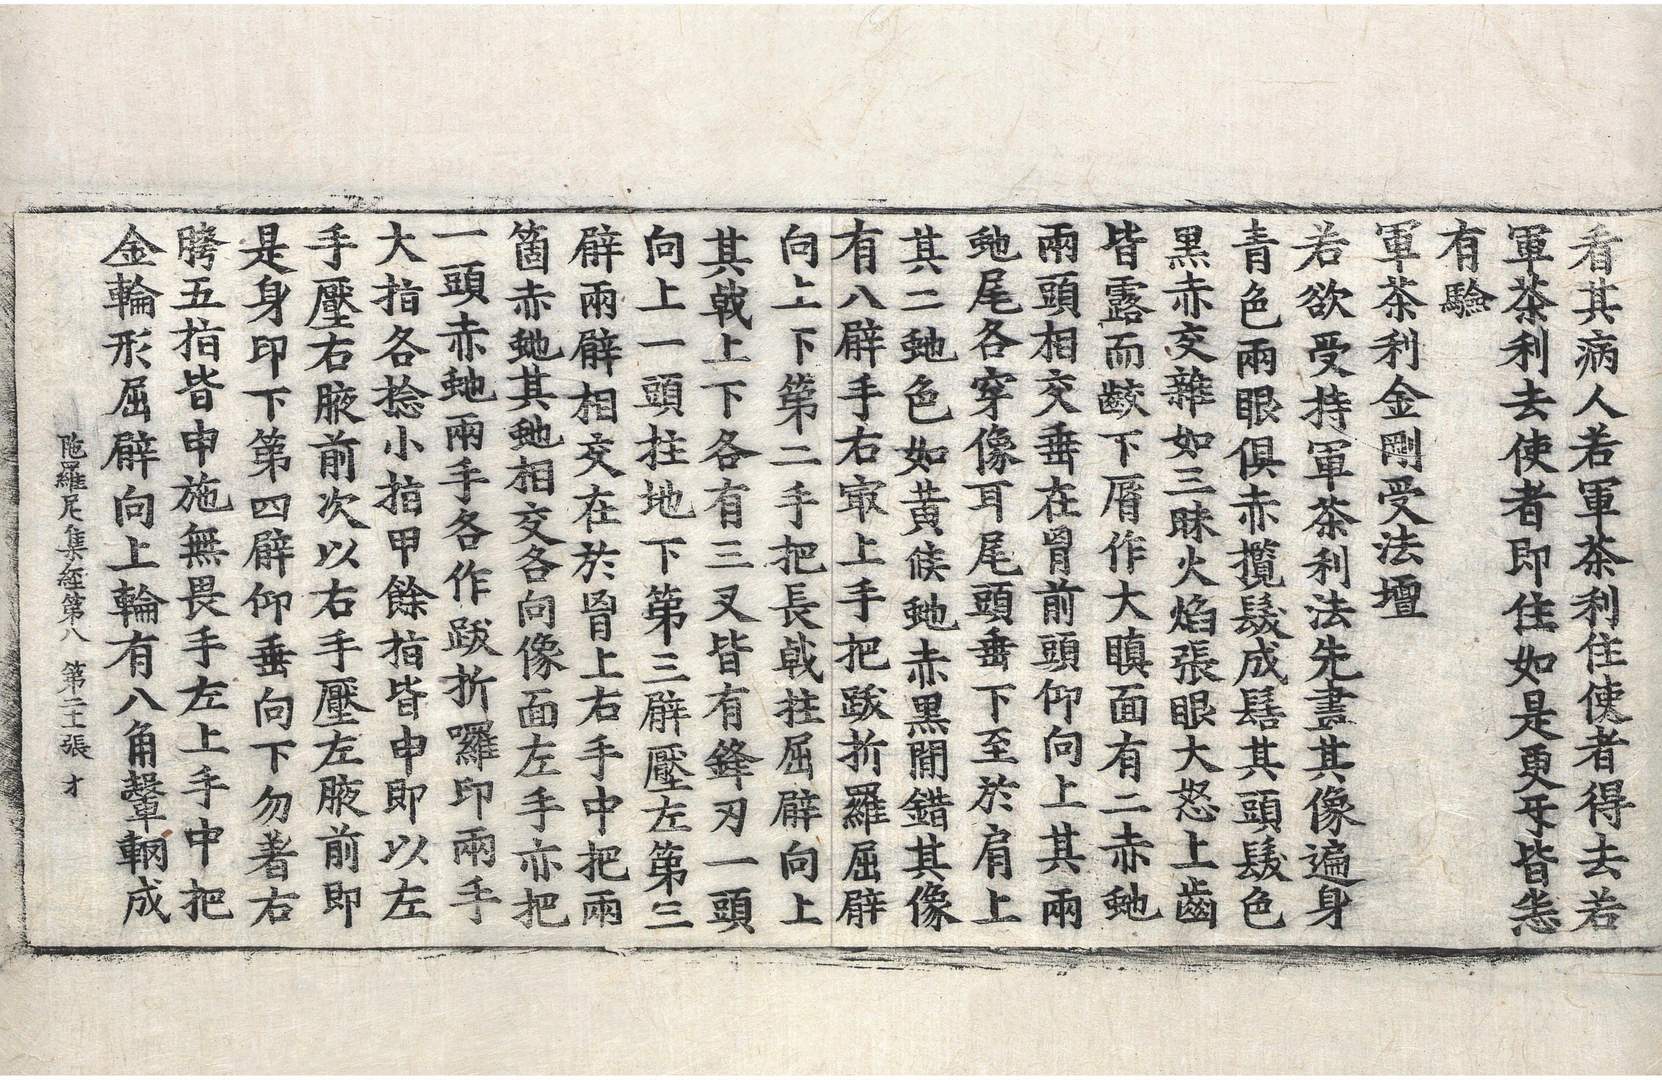 看其病人若軍荼利住使者得去若
軍荼利去使者卽住如是更牙皆悉
有驗
軍荼利金剛受法壇
若欲受持軍荼利法先畫其像遍身
青色兩眼俱赤攬髮成髻其頭髮色
黑赤交雜如三昧火焰張眼大怒上齒
皆露而齩下脣作大瞋面有二赤虵
兩頭相交垂在𦙄前頭仰向上其兩
虵尾各穿像耳尾頭垂下至於肩上
其二虵色如黃侯虵赤黑閒錯其像
有八臂手右冣上手把跋折羅屈臂
向上下第二手把長戟拄屈臂向上
其戟上下各有三叉皆有鋒刃一頭
向上一頭拄地下第三臂壓左第三
臂兩臂相交在於𦙄上右手中把兩
箇赤虵其虵相交各向像面左手亦把
一頭赤虵兩手各作跋折囉印兩手
大指各捻小指甲餘指皆申卽以左
手壓右腋前次以右手壓左腋前卽
是身印下第四臂仰垂向下勿著右
胯五指皆申施無畏手左上手中把
金輪形屈臂向上輪有八角轂輞成
陁羅尼集經第八 第二十張 才